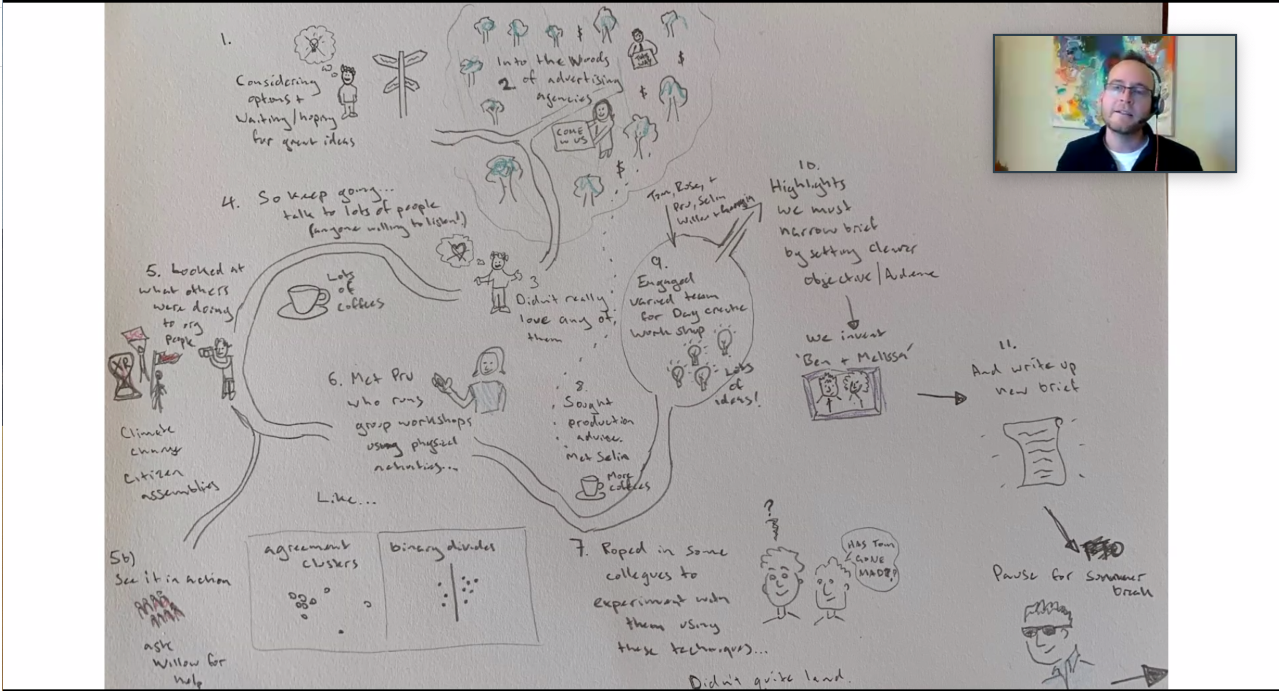 1.
Considering
options +
Waiting/hoping
for great ideas
Into the Woods
2 of advertising
agencies
$
$
$
$
THIS WAY
COME
W US
3
Didn't really
love any of
them
4. So keep going...
talk to lots of people
(anyone willing to listen!)
Lots
of
coffees
5. Looked at
what others
were doing
to org
people
XR
Climate
change
Citizen
assemblies
5b)
See it in action
ask
Willow for
help
6. Met Pru
who runs
group workshops
using physical
activities...
Like...
agreement
clusters
binary divides
7. Roped in some
collegues to
experiment with
them using
these techniques...
Didn't quite land.
?
HAS TOM
GONE
MAD??
8.
Sought
production
advise.
Met Selin
More
coffees
Tom, Rose, +
Pru, Selin
Willow +
9.
Engaged
varied team
for Day create
workshop
Lots
of
ideas!
10.
Highlights
we must
narrow brief
by setting clearer
objective/Audience
We invent
'Ben + Melissa'
11.
And write up
new brief
Pause for summer
break